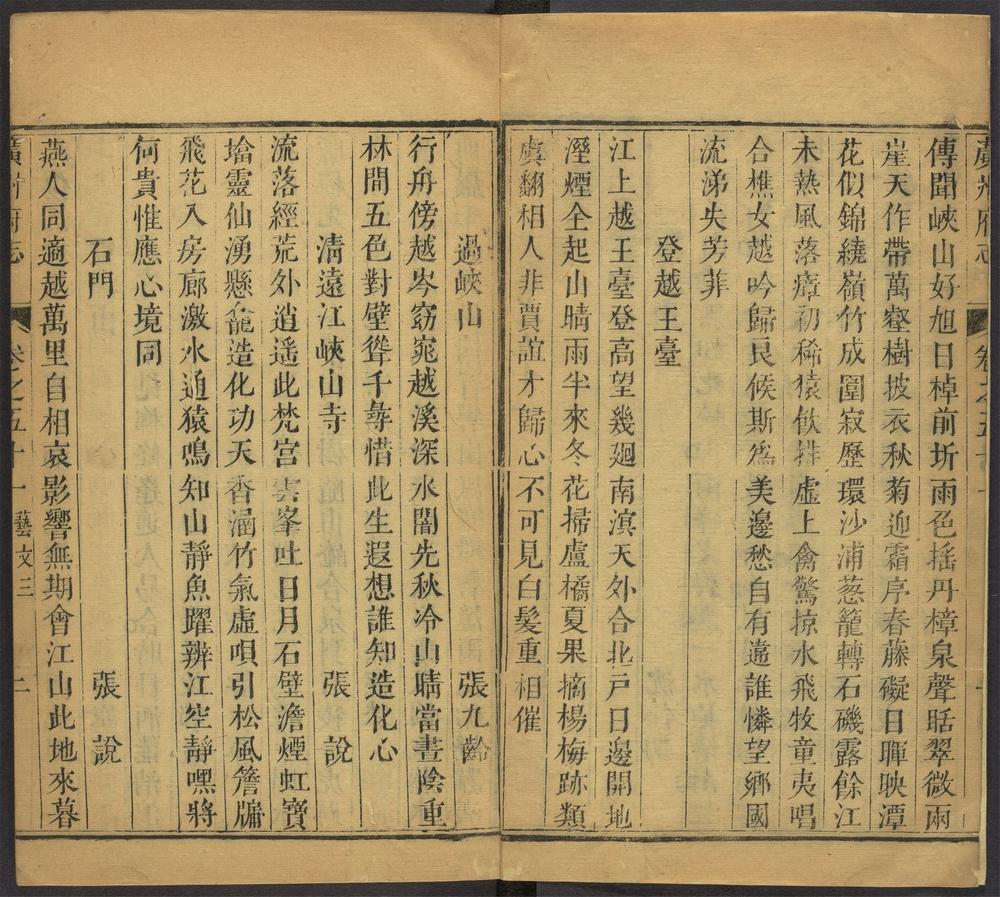 廣州府志 卷之五十一
傳聞峽山好旭日棹前圻雨色搖丹樟泉聲聒翠微兩
崖天作帶萬壑樹披衣秋菊迎霜序春藤礙日暉映潭
花似錦繞嶺竹成圍寂歷環沙浦葱籠轉石磯露餘江
未熟風落瘴初稀猿飲排虛上禽驚掠水飛牧童夷唱
合樵女越吟歸良候斯爲美邊愁自有違誰憐望鄉國
流涕失芳菲
登越王臺
江上越王臺登高望幾廻南溟天外合北戸日邊開地
溼煙全起山晴雨半來冬花掃盧橘夏果摘楊梅跡類
虞翻相人非賈誼才歸心不可見白髮重相催
過峽山 張九齡
行舟傍越岑窈窕越溪深水闇先秋冷山晴當晝陰重
林間五色對壁聳千㝷惜此生遐想誰知造化心
清遠江峽山寺 張說
流落經荒外逍遥此梵宮雲峯吐日月石壁澹煙虹寶
塔靈仙湧懸龕造化功天香涵竹氣虛唄引松風簷牖
飛花入房廊激水通猿鳴知山靜魚躍辨江空靜嘿將
何貴惟應心境同
石門 張說
燕人同適越萬里自相哀影響無期會江山此地來暮
廣州府志 卷之五十一 藝文三 二